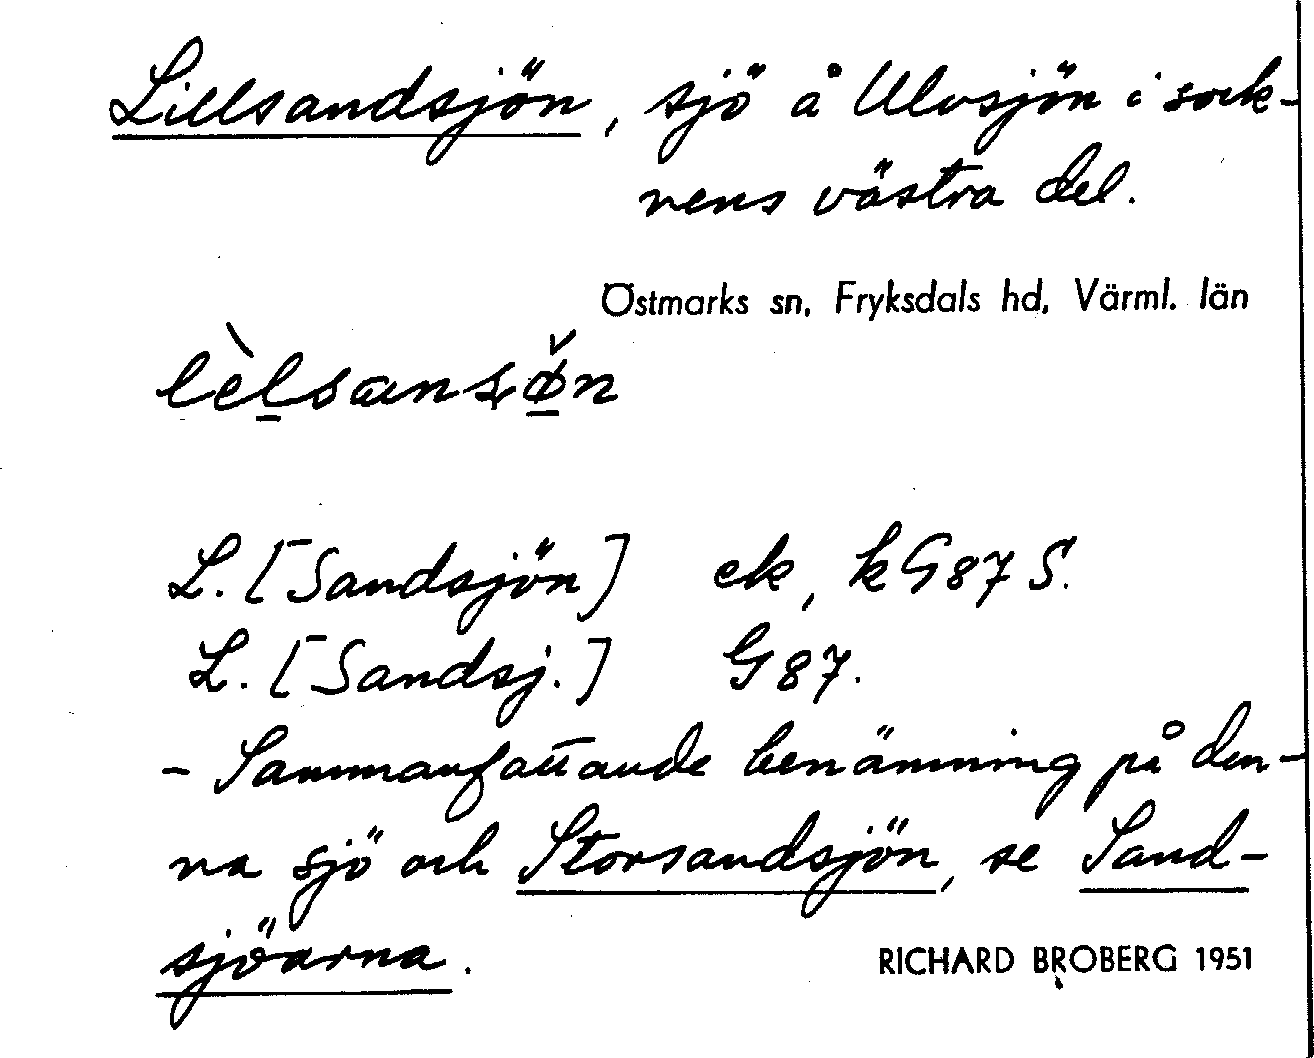 Lillsandsjön, sjö å Ulvsjön i sock-
nens västra del.
Östmarks sn, Fryksdals hd, Värml. län
L. [Sandsjön] ek, kG87 S.
L. [Sandsj.] G87.
- Sammanfattande benämning på den-
na sjö och Storsandsjön, se Sand-
sjöarna.
RICHARD BROBERG 1951